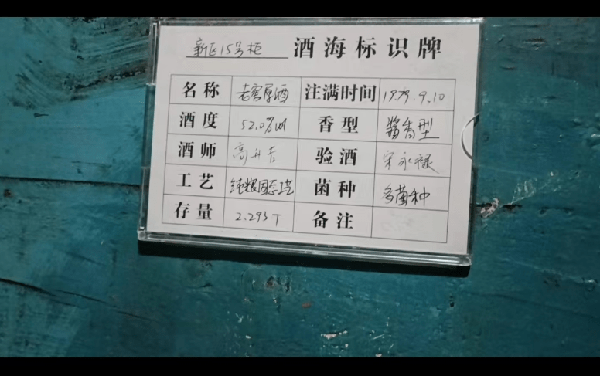 新区15号柜 酒海标识牌
名称 老窖原酒 注满时间 1979.9.10
酒度 52.0%vol 香型 酱香型
酒师 高 验酒 宋永禄
工艺 纯粮固态 菌种 多菌种
存量 2.295T 备注